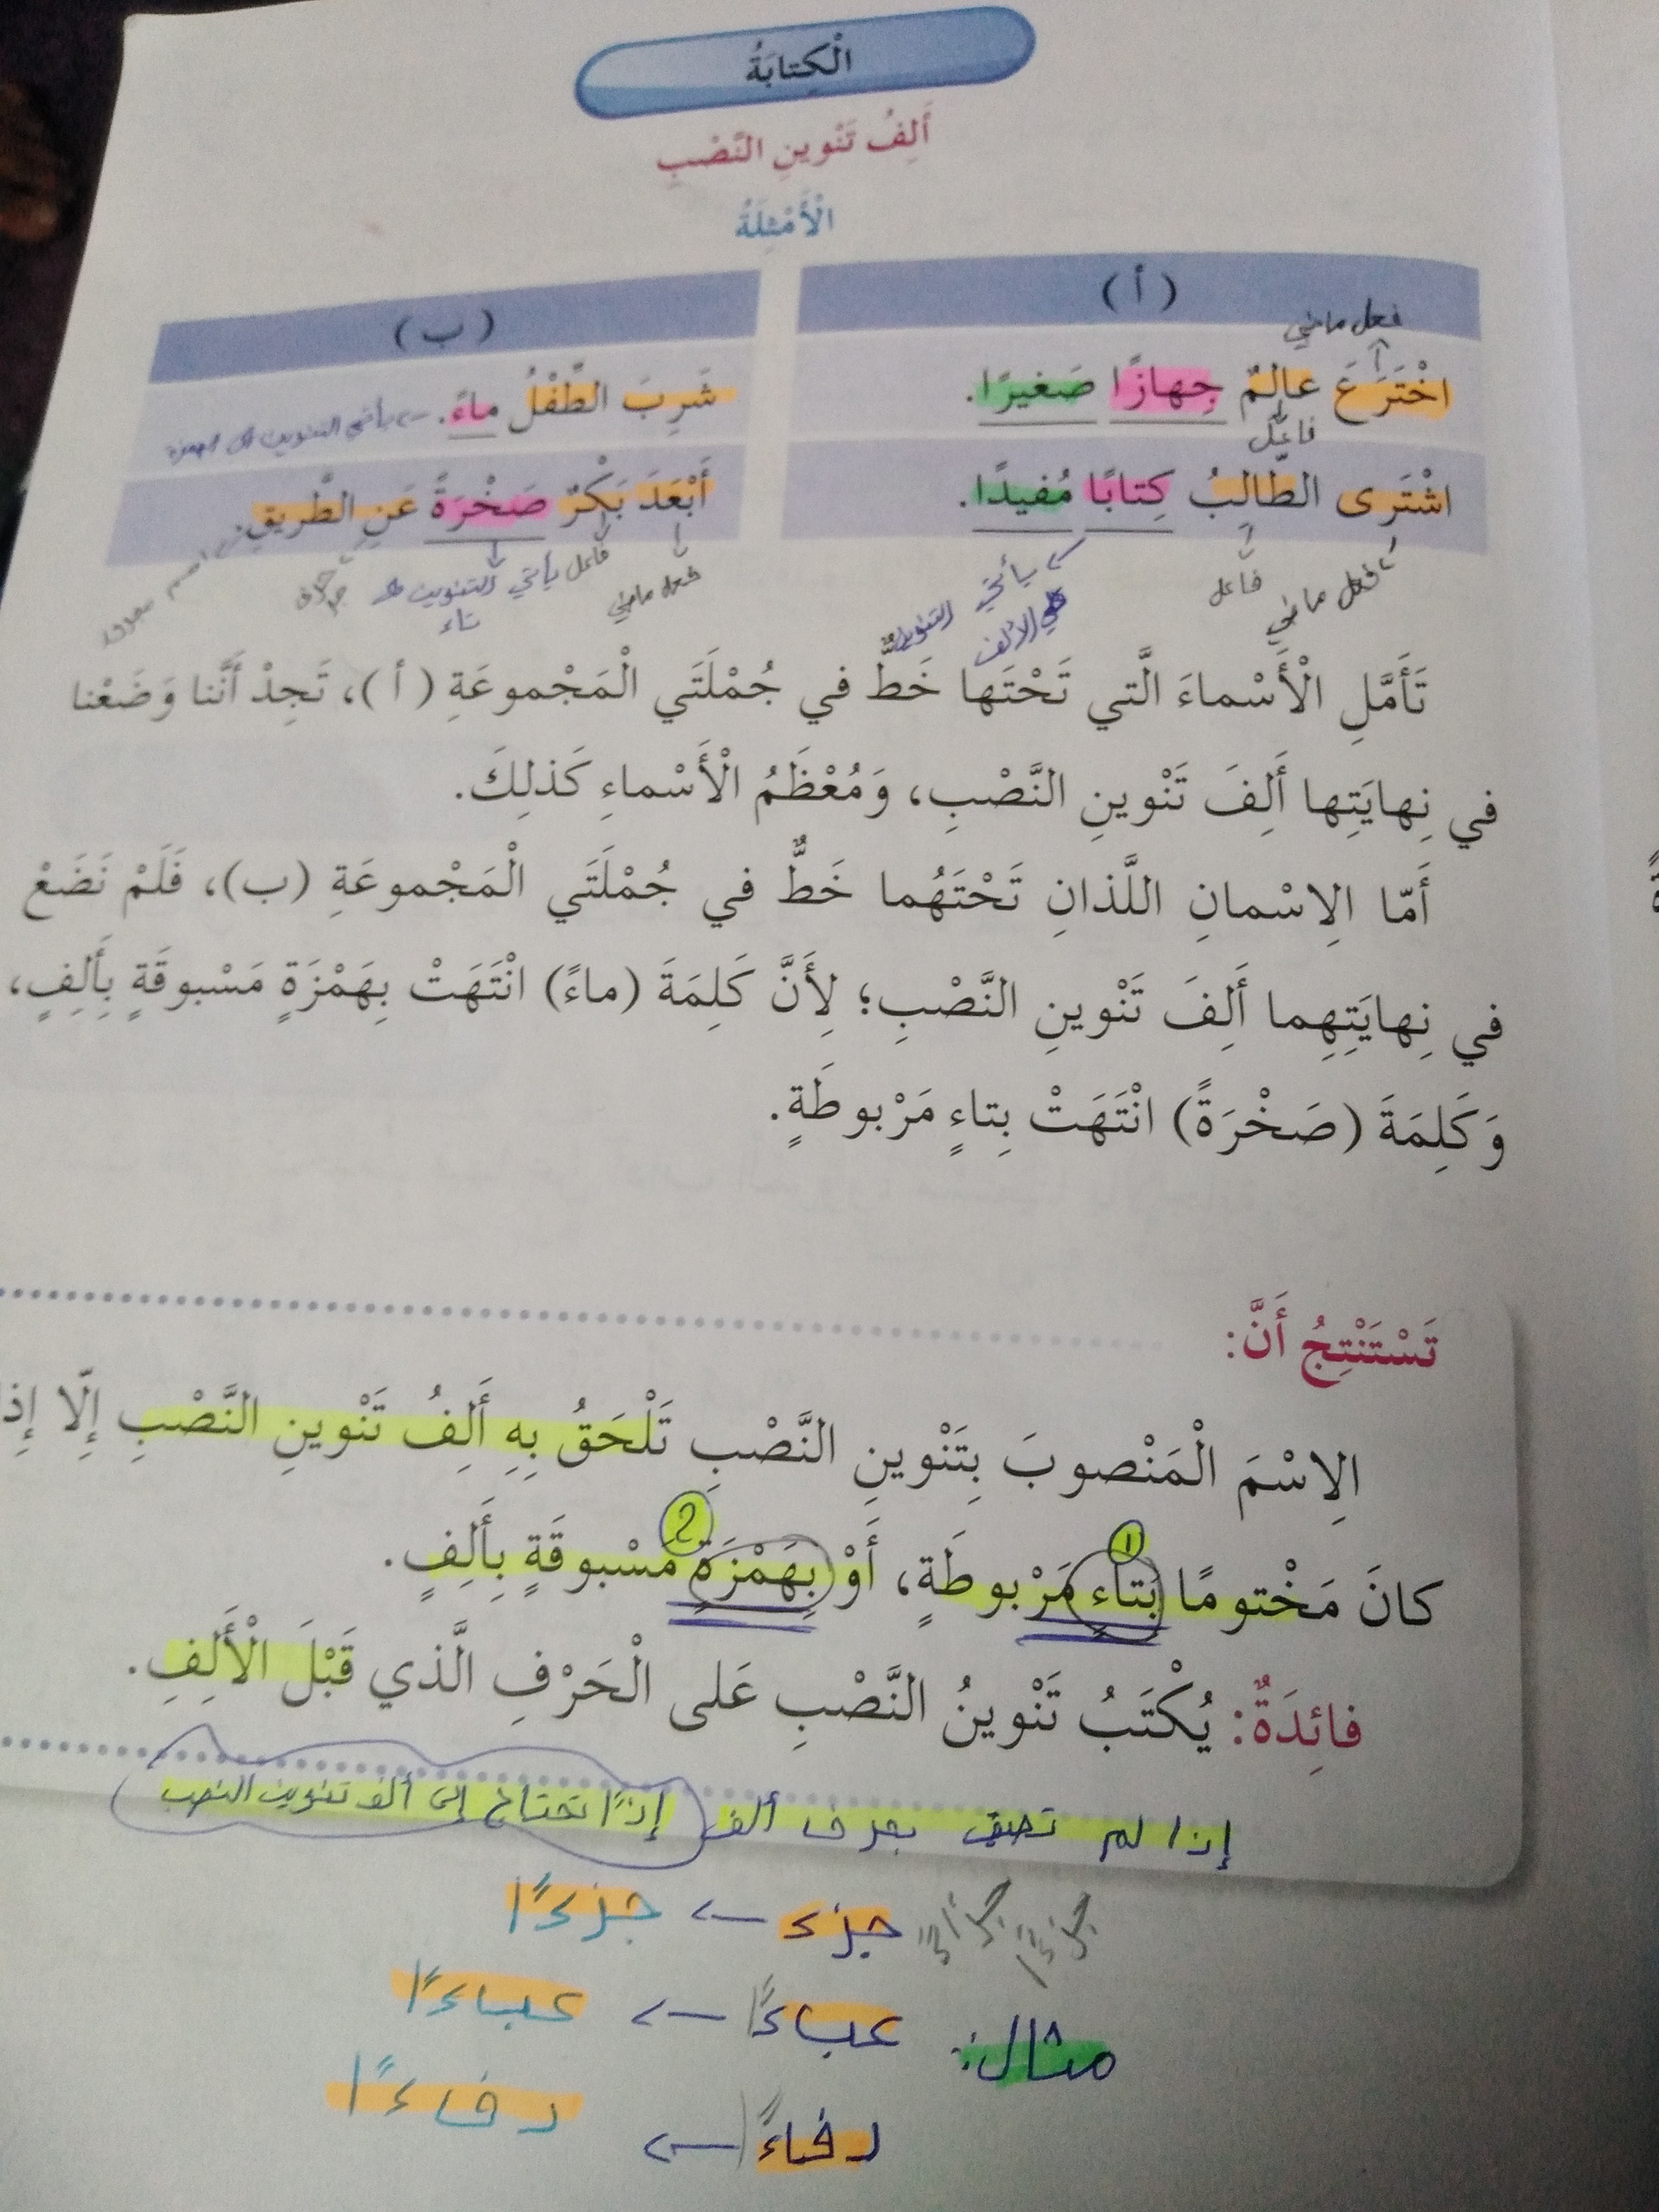 الْكِتابَةُ
أَلِفُ تَنْوينِ النَّصْبِ
الْأَمْثِلَةُ
( أ )
فعل ماضي
اخْتَرَعَ عالِمٌ جِهازًا صَغيرًا.
فاعل
اشْتَرى الطّالِبُ كِتابًا مُفيدًا.
فعل ماضي فاعل يأتي التنوين على الألف
( ب )
شَرِبَ الطِّفْلُ ماءً. يأتي التنوين على الهمزة
أَبْعَدَ بَكْرٌ صَخْرَةً عَنِ الطَّريقِ.
فعل ماضي فاعل يأتي التنوين تاء حرف جر اسم مجرور
تَأَمَّلِ الْأَسْماءَ الَّتي تَحْتَها خَطٌّ في جُمْلَتَي الْمَجْموعَةِ ( أ )، تَجِدْ أَنَّنا وَضَعْنا
في نِهايَتِها أَلِفَ تَنْوينِ النَّصْبِ، وَمُعْظَمُ الْأَسْماءِ كَذلِكَ.
أَمّا الِاسْمانِ اللَّذانِ تَحْتَهُما خَطٌّ في جُمْلَتَي الْمَجْموعَةِ (ب)، فَلَمْ نَضَعْ
في نِهايَتِهِما أَلِفَ تَنْوينِ النَّصْبِ؛ لِأَنَّ كَلِمَةَ (ماءً) انْتَهَتْ بِهَمْزَةٍ مَسْبوقَةٍ بِأَلِفٍ،
وَكَلِمَةَ (صَخْرَةً) انْتَهَتْ بِتاءٍ مَرْبوطَةٍ.
تَسْتَنْتِجُ أَنَّ:
الِاسْمَ الْمَنْصوبَ بِتَنْوينِ النَّصْبِ تَلْحَقُ بِهِ أَلِفُ تَنْوينِ النَّصْبِ إِلّا إِذا
1 2
كانَ مَخْتومًا بِتاءٍ مَرْبوطَةٍ، أَوْ بِهَمْزَةٍ مَسْبوقَةٍ بِأَلِفٍ.
فائِدَةٌ: يُكْتَبُ تَنْوينُ النَّصْبِ عَلى الْحَرْفِ الَّذي قَبْلَ الْأَلِفِ.
إذا لم تسبق بحرف ألف إذًا تحتاج إلى ألف تنوين النصب
جزء ← جزءًا
مثال: عباءً ← عباءًا
دفاءً ← دفاءًا